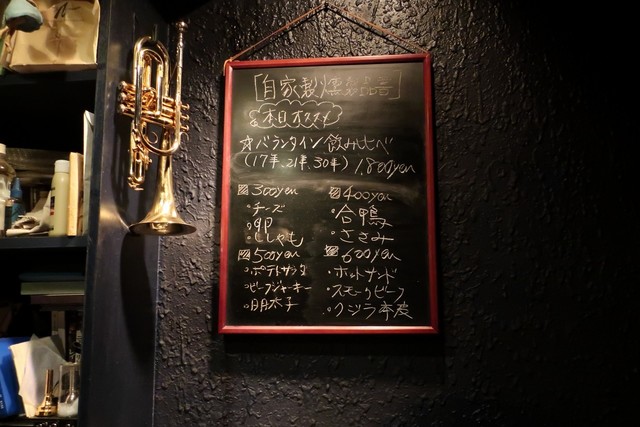 「自家製燻
本日オススメ
☆バランタイン飲み比べ
(17年、21年、30年) 1,800yen
300yen
・チーズ
・卵
・ししゃも
500yen
・ポテトサラダ
・ビーフジャーキー
・明太子
400yen
・合鴨
・ささみ
600yen
・ホットサンド
・スモークビーフ
・クジラ本皮